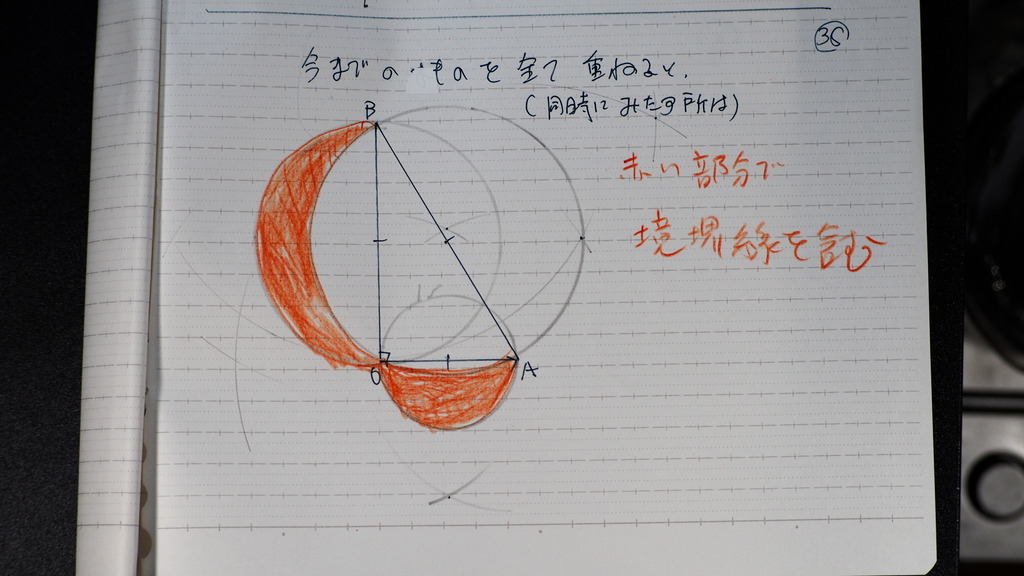 36
今までのものを全て重ねると、
(同時にみたす所は)
赤い部分で
境界線を含む
B
O
A